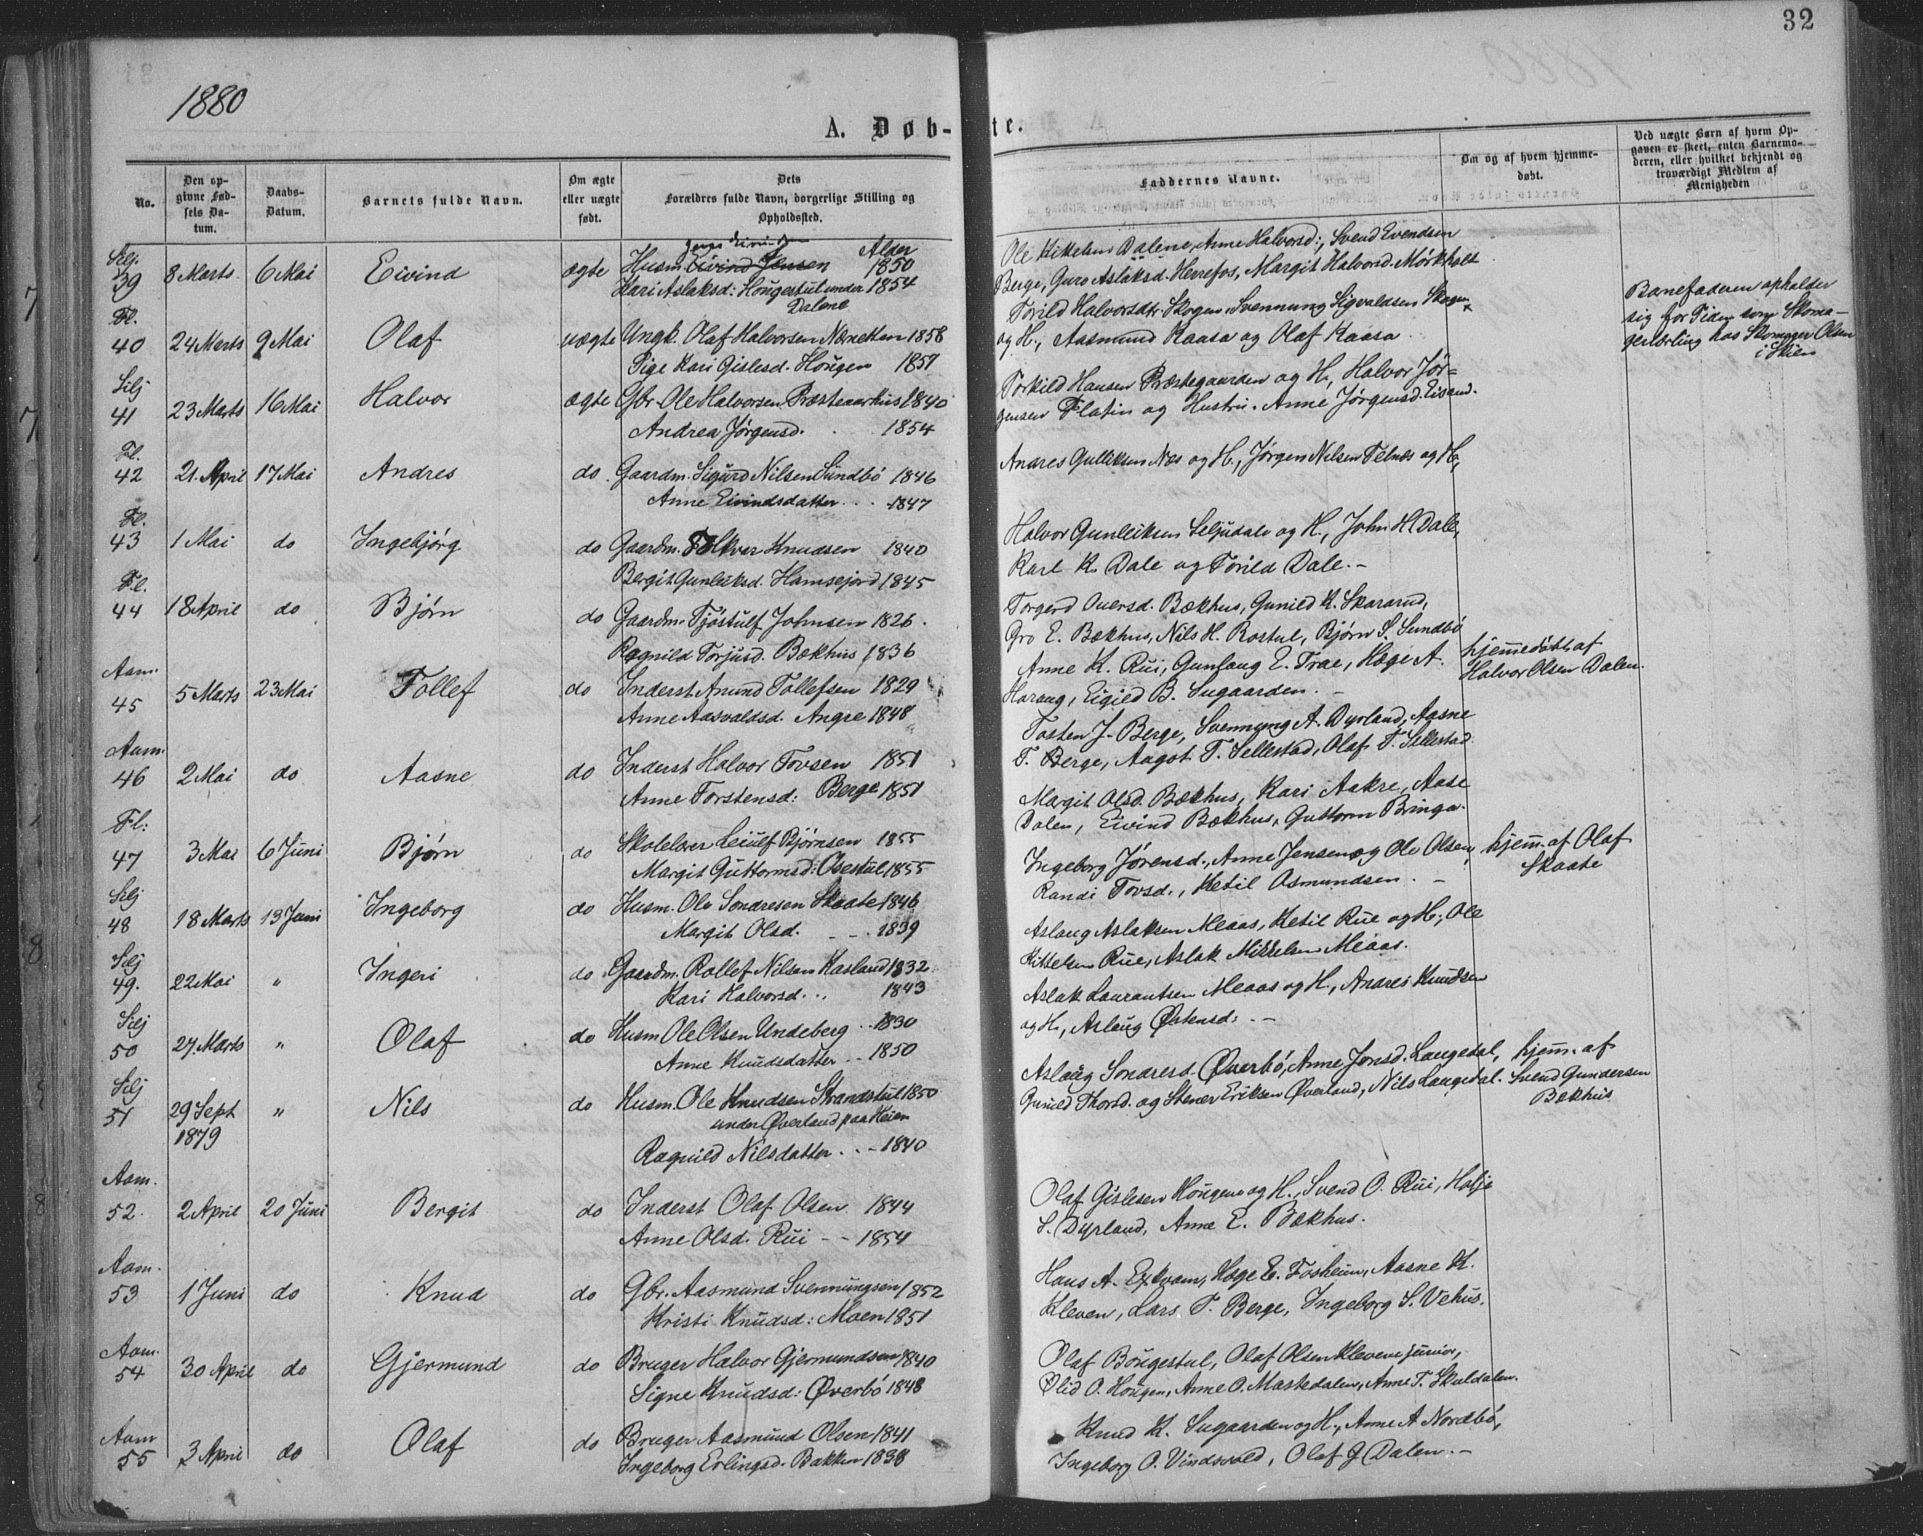 32
1880
A. Døb-te.
No.
Den opgivne Fødsels Datum.
Daabs-Datum.
Barnets fulde Navn.
Om ægte eller uægte født.
Dets Forældres fulde Navn, borgerlige Stilling og Opholdssted.
Faddernes Navne.
Om og af hvem hjemmedøbt.
Ved uægte Børn af hvem Opgaven er skeet, enten Barnemoderen, eller hvilket bekjendt og troværdigt Medlem af Menigheden
Alder
Silj. 39 8 Marts 6 Mai Eivind ægte Husm. Eivind Jensen 1850
Kari Aslaksd: Hougestul under 1854
Dalene
Ole Kittelsen Dalene, Anne Halvorsd:, Svend Evendsen
Berge, Guro Aslaksd. Herrefos, Margit Halvorsd. Mørkholt
Fl. 40 24 Marts 9 Mai Olaf uægte Ungk. Olaf Halvorsen 1858
Pige Kari Gislesd. Hougen 1857
Torild Halvorsdtr. Skogen, Svennung Sigvaldsen Skogen
og H., Aasmund Kaasa og Olaf Kaasa
Barnefaderen opholder
sig for Tiden som Skoma-
gerlærling hos Skomager Olsen
i Skien
Silj 41 23 Marts 16 Mai Halvor ægte Gbr. Ole Halvorsen 1840
Andrea Jørgensd. 1854
Torkild Hansen Præstegaarden og H., Halvor Jør=
gensen Flatin og Hustru. Anne Jørgensd.
Fl. 42 21. April 17 Mai Andres do. Gaardm. Sigurd Nilsen Sundbø 1846
Anne Eivindsdatter 1847
Andres Gulliksen Næs og H., Jørgen Nilsen Felnæs og H.,
Fl. 43 1 Mai do Ingebjørg do Gaardm. Folkver Knudsen 1840
Bergit Gunleiksd. Hamsejord 1845
Halvor Gunleiksen Seljudale og H., John H. Dale,
Karl K. Dale og Torild Dale. -
Fl. 44 18 April do Bjørn do Gaardm. Tjøstulf Johnsen 1826.
Ragnild Torjusd. Bækhus 1836
Torgerd Ouersd. Bækhus, Gunild K. Skararud,
Gro E. Bækhus, Nils H. Rostul, Bjørn S. Sundbø
Aam. 45 5 Marts 23 Mai Tollef do Inderst Anund Tollefsen 1829
Anne Aasvaldsd. Angre 1848
Anne K. Rui, Gunlaug E. Trae, Hæge A.
Haraug, Eigild B. Sugaarden. -
hjemmedøbt af
Halvor Olsen Dalen.
Aam. 46 2 Mai do Aasne do Inderst Halvor Tovsen 1851
Anne Torstensd: Berge 1851
Tosten J. Berge, Svennung A. Dyrland, Aasne
T. Berge, Aagot T. Sellestad, Olaf T. Sellestad
Fl: 47 3 Mai 6 Juni Bjørn do Skolelærer Leiulf Bjørnsen 1855
Margit Guttormsd: Osestul 1855
Margit Olsd. Bækhus, Kari Aakre, Aase
Dalen, Eivind Bækhus, Guttorm Bringa.
Silj 48 18 Marts 13 Juni Ingeborg do Husm. Ole Sondresen Skaate 1846
Margit Olsd. - - 1839
Ingeborg Jørensd., Anne Jensen og Ole Olsen,
Randi Tovsd., Ketil Osmundsen. -
hjem. af Olaf
Skaate
Silj 49. 22 Mai " Ingeri do Gaardm. Rollef Nilsen Kasland 1832
Kari Halvorsd. .. 1843
Aslaug Aslaksen Meaas, Ketil Rue og H., Ole
Kittelsen Rue, Aslak Mikkelsen Meaas.
Silj 50 27. Marts " Olaf do Husm. Ole Olsen Undeberg .. 1830
Anne Knudsdatter .. 1850
Aslak Laurantsen Meaas og H., Andres Knudsen
og H., Aslaug Østensd: -
Silj 51 29 Sept 1879 " Nils do Husm. Ole Knudsen Strandstul 1850
under Øverland paa Heien
Ragnild Nilsdatter . . - 1840
Aslaug Sondresd. Øverbø, Anne Jonsd. Laugedal,
Gunild Thorsd. og Stener Eriksen Øverland, Nils Laugedal.
hjem. af
Svend Gundersen
Bækhus
Aam. 52. 2 April 20 Juni Bergit do Inderst Olaf Olsen 1844
Anne Olsd. Rui - - 1854
Olaf Gislesen Hougen og H., Svend O. Rui, Hølje
S. Dyrland, Anne E. Bækhus.
Aam. 53 1 Juni do Knud do Gbr. Aasmund Svennungsen 1852
Kristi Knudsd: Moen 1851
Hans A. Exkvam, Hæge E. Fosheim, Aasne K.
Kleven, Lars T. Berge, Ingeborg S. Vehus.
Aam. 54 30 April do Gjermund do Bruger Halvor Gjermundsen 1840
Signe Knudsd: Øverbø 1848
Olaf Bougestul, Olaf Olsen Kleven junior,
Olid O. Hougen, Anne O. Mastedalen, Anne T. Skuldalen.
Aam 55 3 April do Olaf do Bruger Aasmund Olsen 1841
Ingeborg Erlingsd. Bakken 1838
Knud K. Sugaarden og H., Anne A Nordbø,
Ingeborg O. Vindsvold, Olaf G Dalen. -